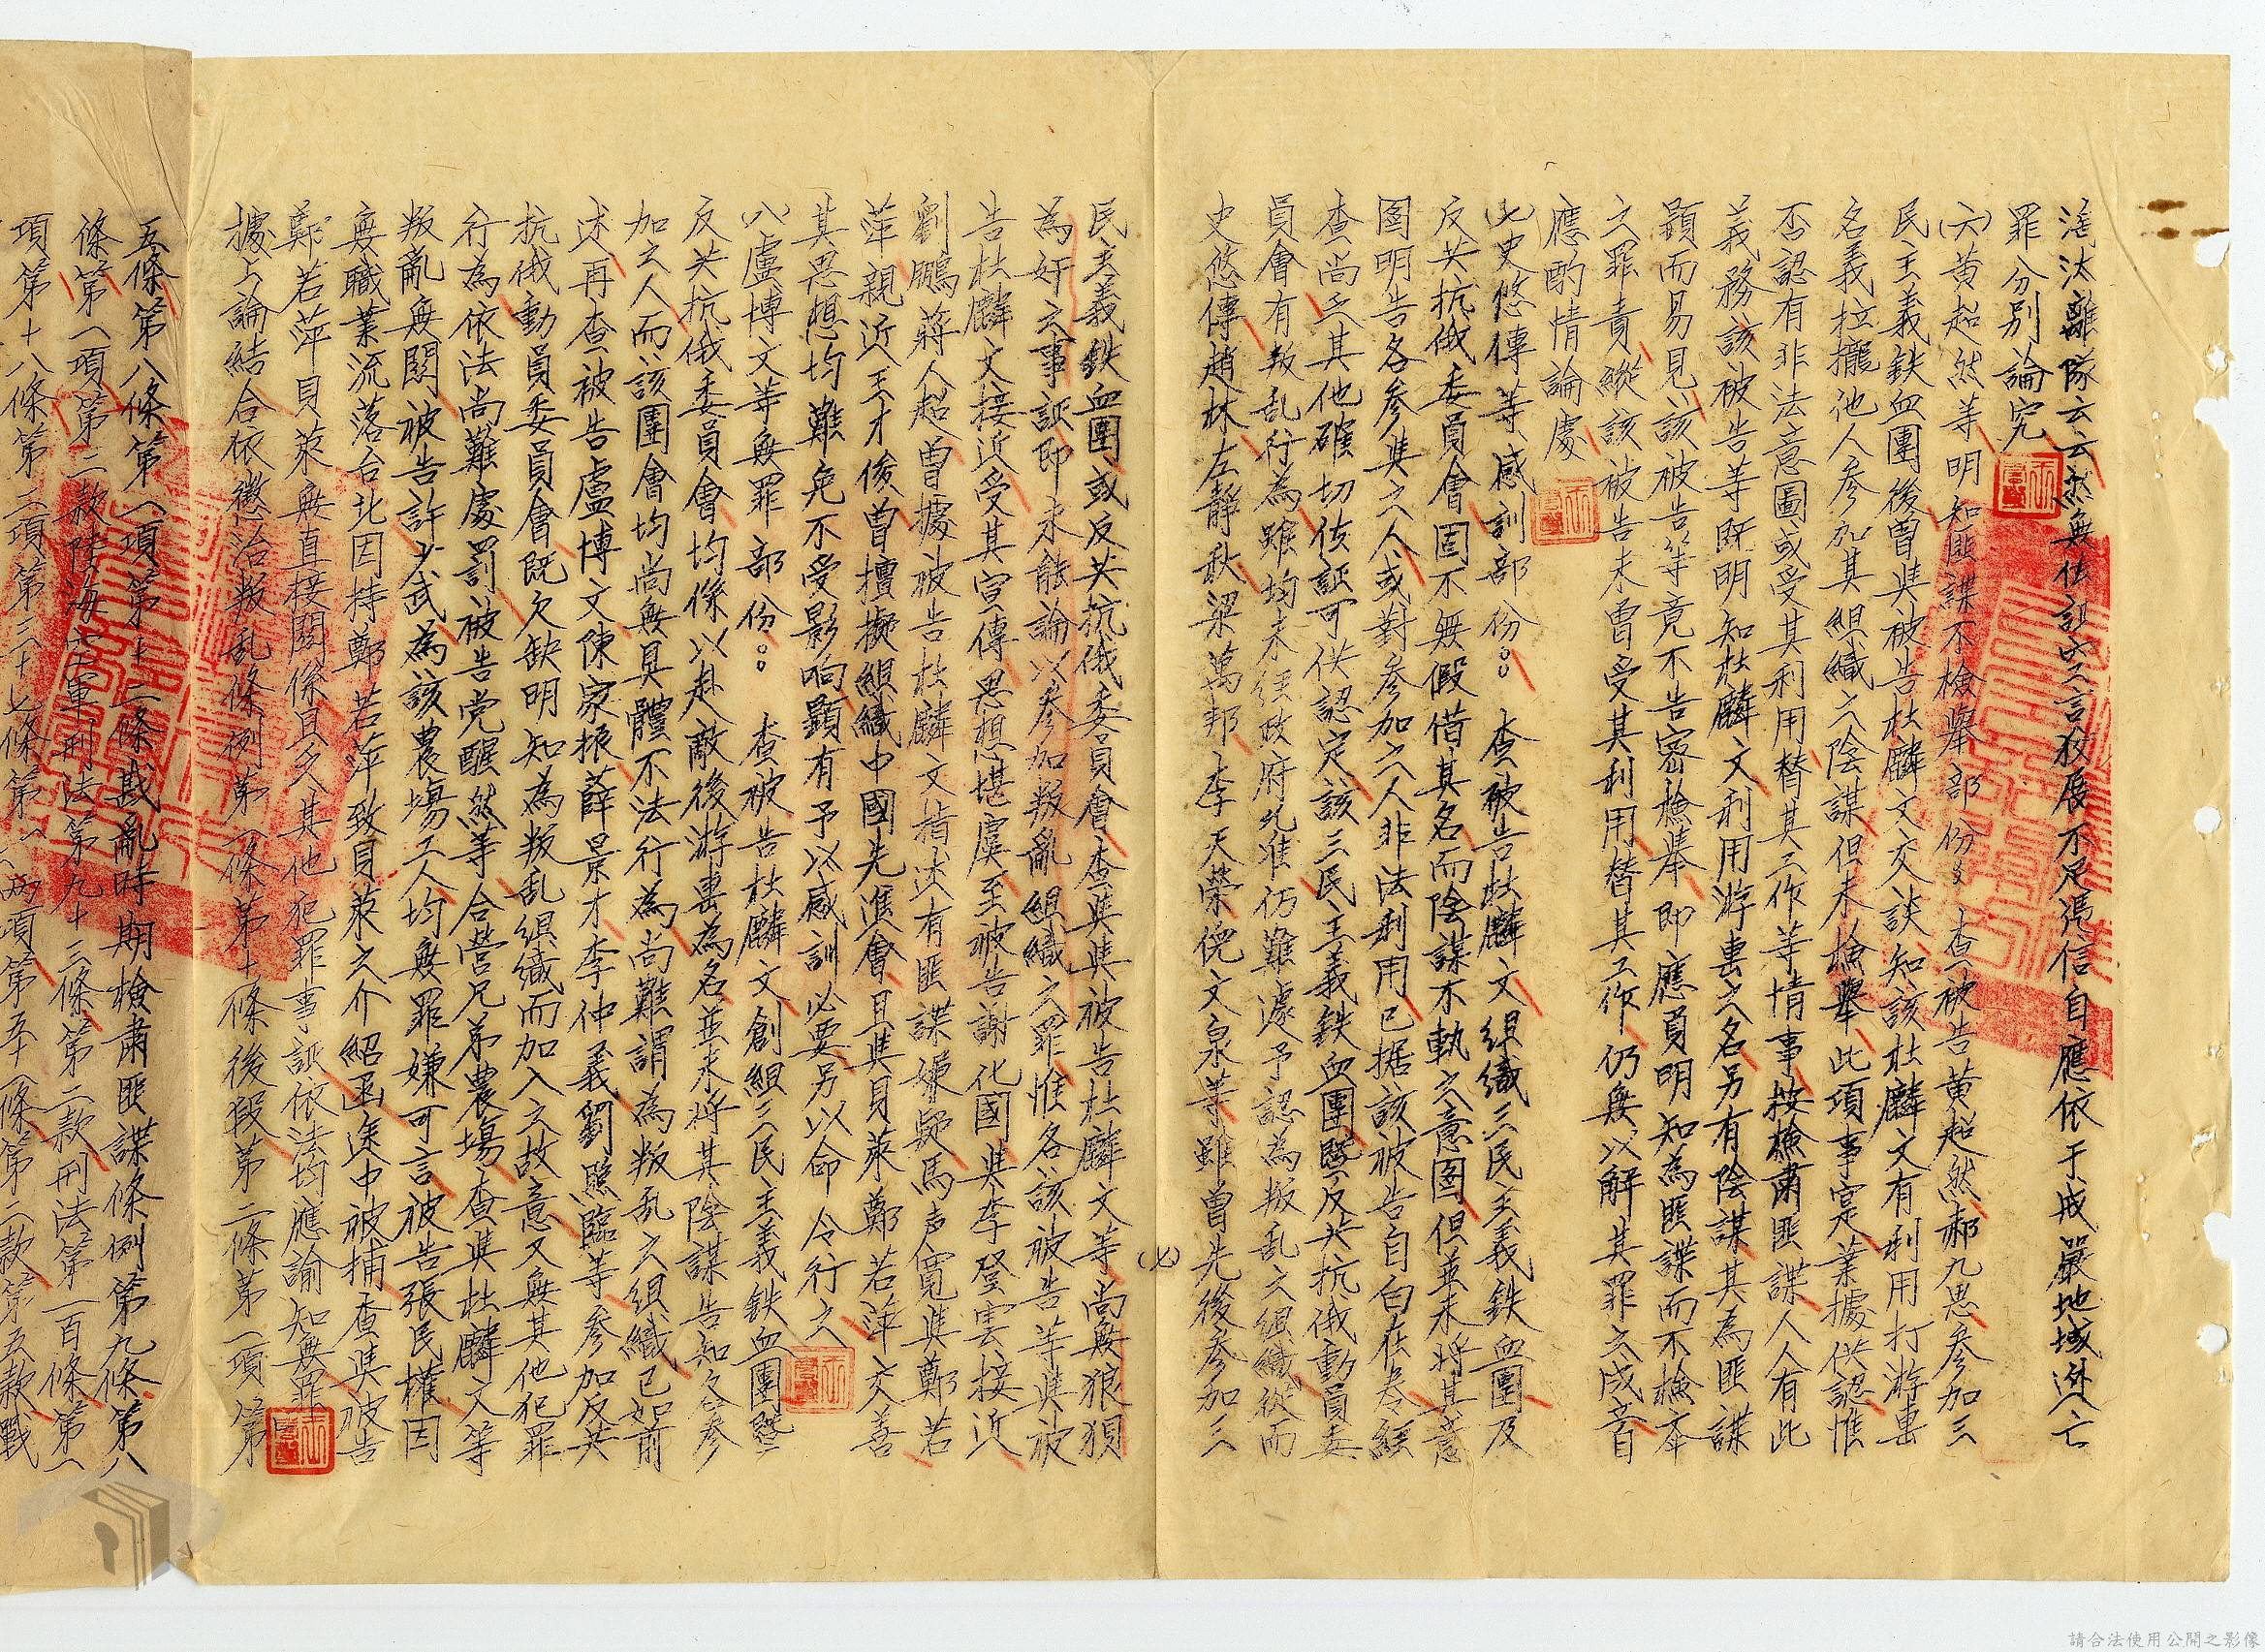 淘汰離隊云云然無佐証空言狡展不足憑信自應依于戒嚴地域逃亡
罪分別論究
(六)黃超然等明知匪諜不檢舉部份：查被告黃超然郝九思參加三
民主義鉄血團後曾與被告杜麟文交談知該杜麟文有利用打游擊
名義拉攏他人參加其組織之陰謀但未檢舉此項事寔業據供認惟
否認有非法意圖或受其利用替其工作等情事按檢肅匪諜人人有此
義務該被告等既明知杜麟文利用游擊之名另有陰謀其為匪諜
顯而易見該被告等竟不告密檢舉即應負明知為匪諜而不檢舉
之罪責縱該被告未曾受其利用替其工作仍無以解其罪之成立
應酌情論處
(七)史悠傳等感訓部份：查被告杜麟文組織三民主義鉄血團及
反共抗俄委員會固不無假借其名而陰謀不軌之意图但並未將其意
图明告各參與之人或對參加之人非法利用已据該被告自白在卷經
查尚乏其他確切佐証可供認定該三民主義鉄血團暨反共抗俄動員委
員會有叛乱行為雖均未經政府允准仍難遽予認為叛乱之組織從而
史悠傳趙林左靜秋梁萬邦李天榮倪文泉等雖曾先後參加三
(七)
民主義鉄血團或反共抗俄委員會查其與被告杜麟文等尚無狼狽
為奸之事証即未能論以參加叛亂組織之罪惟各該被告等與被
告杜麟文接近受其宣傳思想堪虞至被告謝化國與李登雲接近
劉鵬蔣人超曾據被告杜麟文指述有匪諜嫌疑馬声寬與鄭若
萍親近王才俊曾擅擬組織中國先進會且與貝萊鄭若萍交善
其思想均難免不受影响顯有予以感訓必要另以命令行之
八盧博文等無罪部份：查被告杜麟文創組三民主義鉄血團暨
反共抗俄委員會均係以赴敵後游擊為名並未將其陰謀告知各參
加之人而該團會均尚無具體不法行為尚難謂為叛乱之組織已如前
述再查被告盧博文陳家振薛景才李仲義劉照臨等參加反共
抗俄動員委員會既欠缺明知為叛乱組織而加入之故意又無其他犯罪
行為依法尚難處罰被告党醒然等合營兄弟農場查與杜麟文等
叛亂無関被告許少武為該農場工人均無罪嫌可言被告張民權因
無職業流落台北因持鄭若萍致貝萊之介紹函途中被捕查與被告
鄭若萍貝萊無直接関係且欠其他犯罪事証依法均應諭知無罪
據上論結合依懲治叛乱條例第一條第十條後段第二條第一項第
五條第八條第一項第十二條戡亂時期檢肅匪諜條例第九條第八
條第一項第二款陸海空軍刑法第九十三條第二款刑法第一百條第一
項第十八條第二項第三十七條第一、二兩項第五十一條第二款第五款戰
請合法使用公開之影像